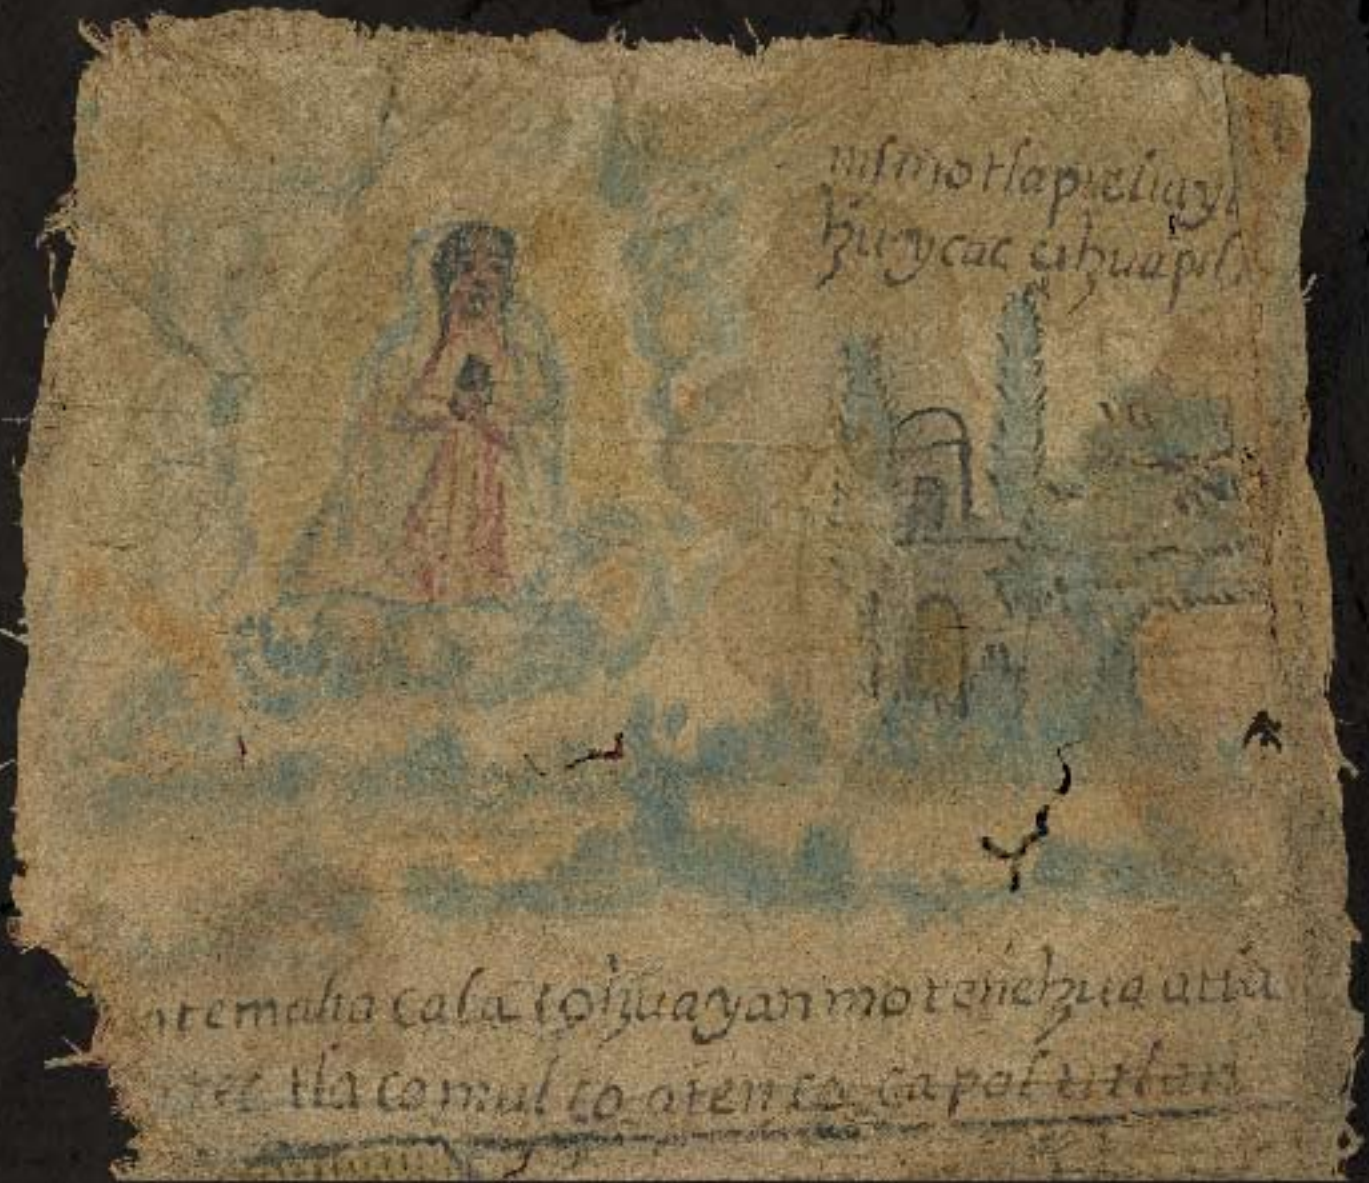 nismotlapieliayi
huyycac cihuapil
temalia cala cohuayan motenehua atla
tlacomulco atenco capoltitlan